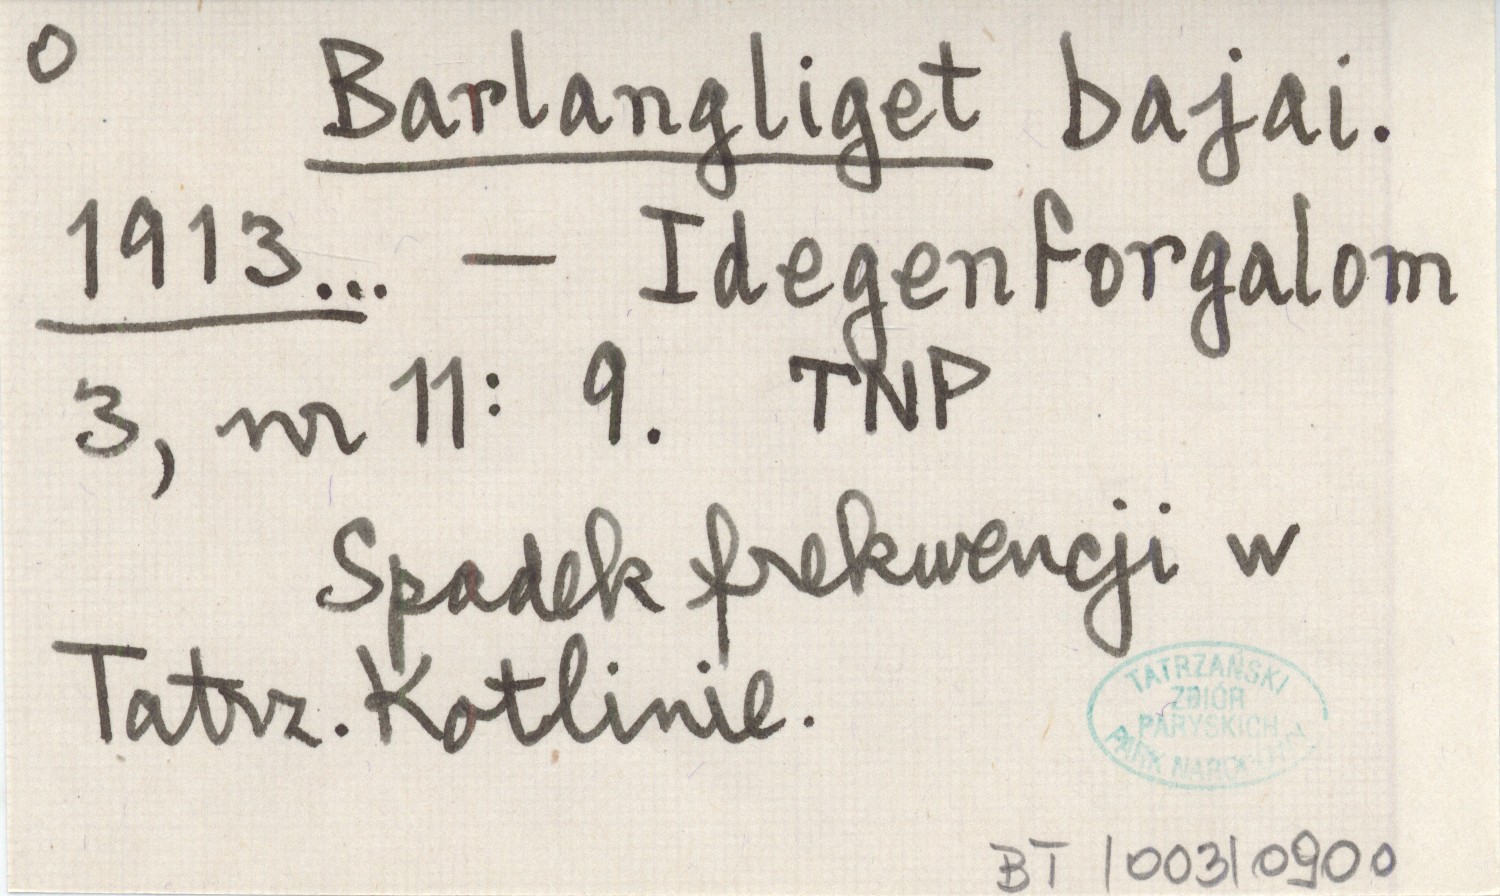 O Barlangliget bajai.
1913... — Idegenforgalom
3, nr 11: 9. TNP
Spadek frekwencji w
Tatrz. Kotlinie.
TATRZAŃSKI
ZBIÓR
PARYSKICH
PARK NARODOWY
BT /003/0900